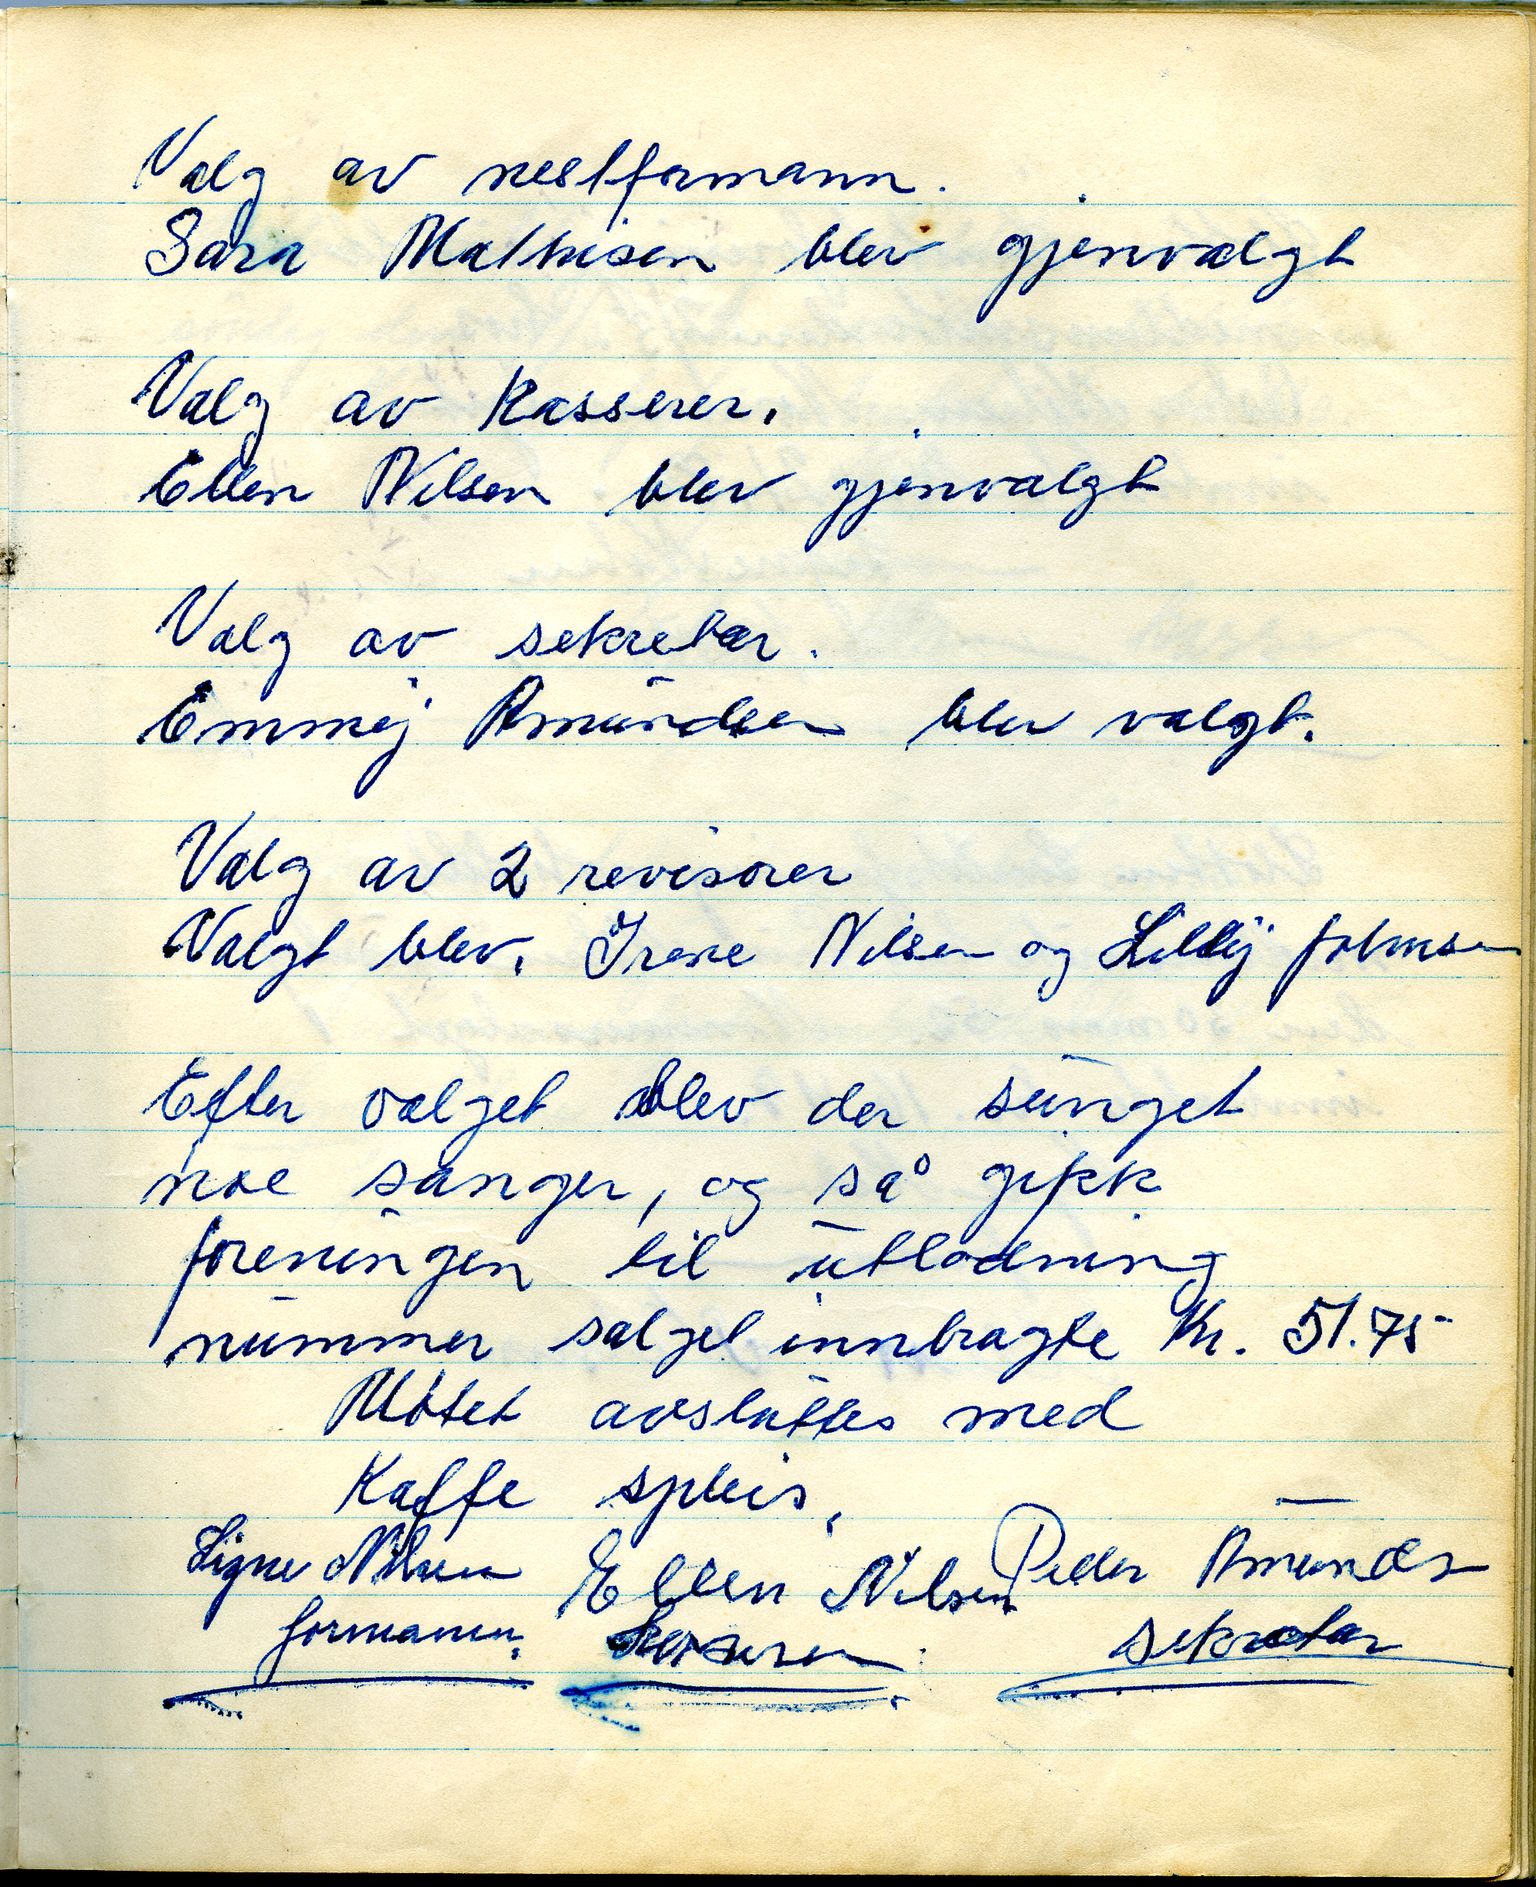 Valg av nestformann.
Sara Mathisen blev gjenvalgt
Valg av Kasserer.
Ellen Nilsen blev gjenvalgt
Valg av sekretær.
Emmij Amundsen blev valgt.
Valg av 2 revisorer
Valgt blev. Irene Nilsen og Lillij Johnsen
Efter valget blev der sunget
noe sanger, og så gikk
foreningen til utlodning
nummer salget innbragte Kr. 51.75
Møtet avsluttes med
Kaffe spleis.
Signe Nilsen Ellen Nilsen Peder Amundsen
formann. Kasserer sekretær